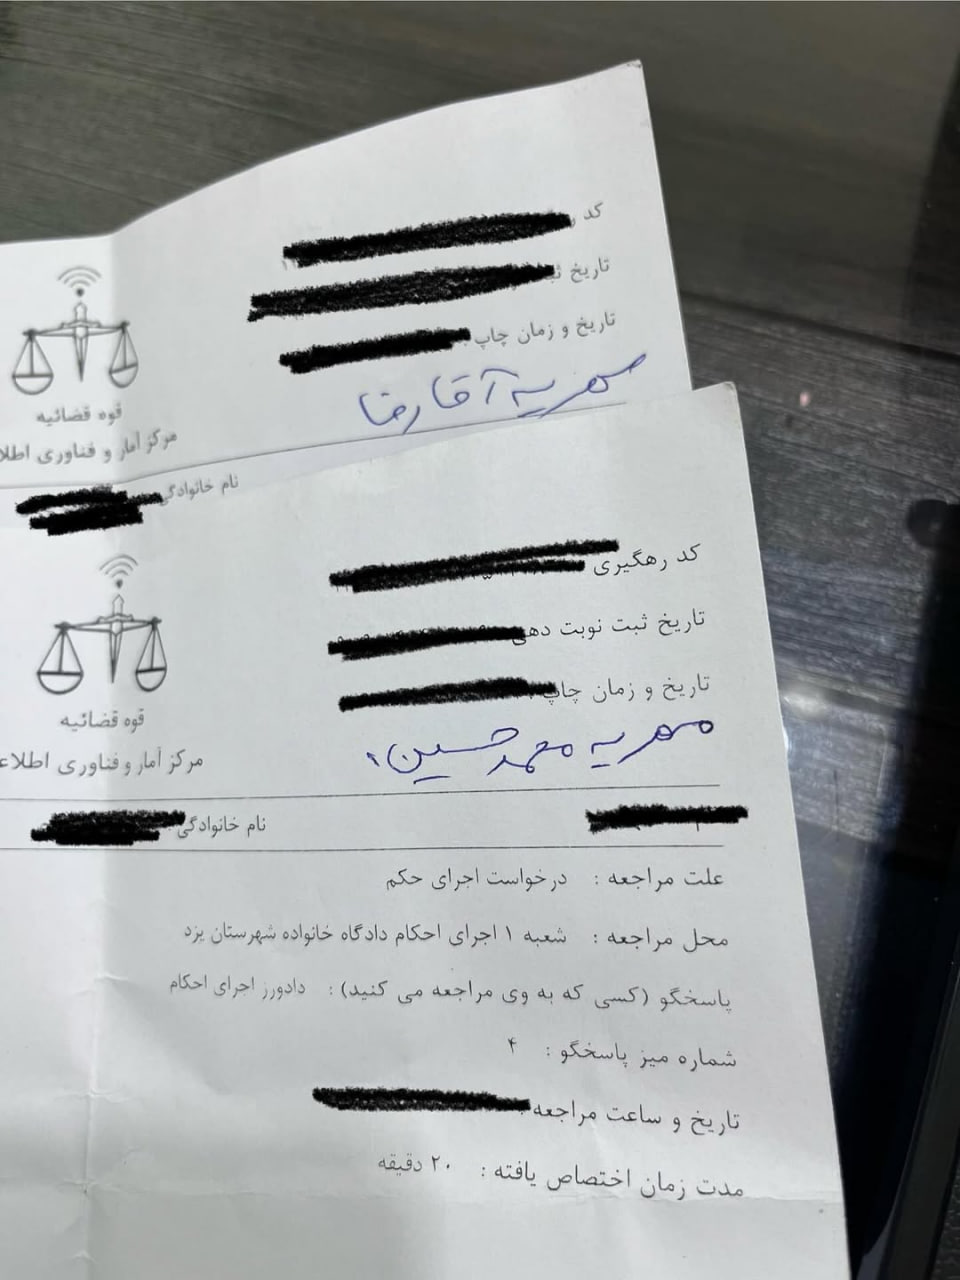 کد
تاریخ
تاریخ و زمان چاپ
مهریه آقا رضا
قوه قضائیه
مرکز آمار و فناوری اطلا
نام خانوادگی
کد رهگیری
تاریخ ثبت نوبت دهی
تاریخ و زمان چاپ
مهریه محمدحسین
قوه قضائیه
مرکز آمار و فناوری اطلاع
نام خانوادگی
علت مراجعه : درخواست اجرای حکم
محل مراجعه : شعبه ۱ اجرای احکام دادگاه خانواده شهرستان یزد
پاسخگو (کسی که به وی مراجعه می کنید) : دادورز اجرای احکام
شماره میز پاسخگو : ۴
تاریخ و ساعت مراجعه
مدت زمان اختصاص یافته : ۲۰ دقیقه